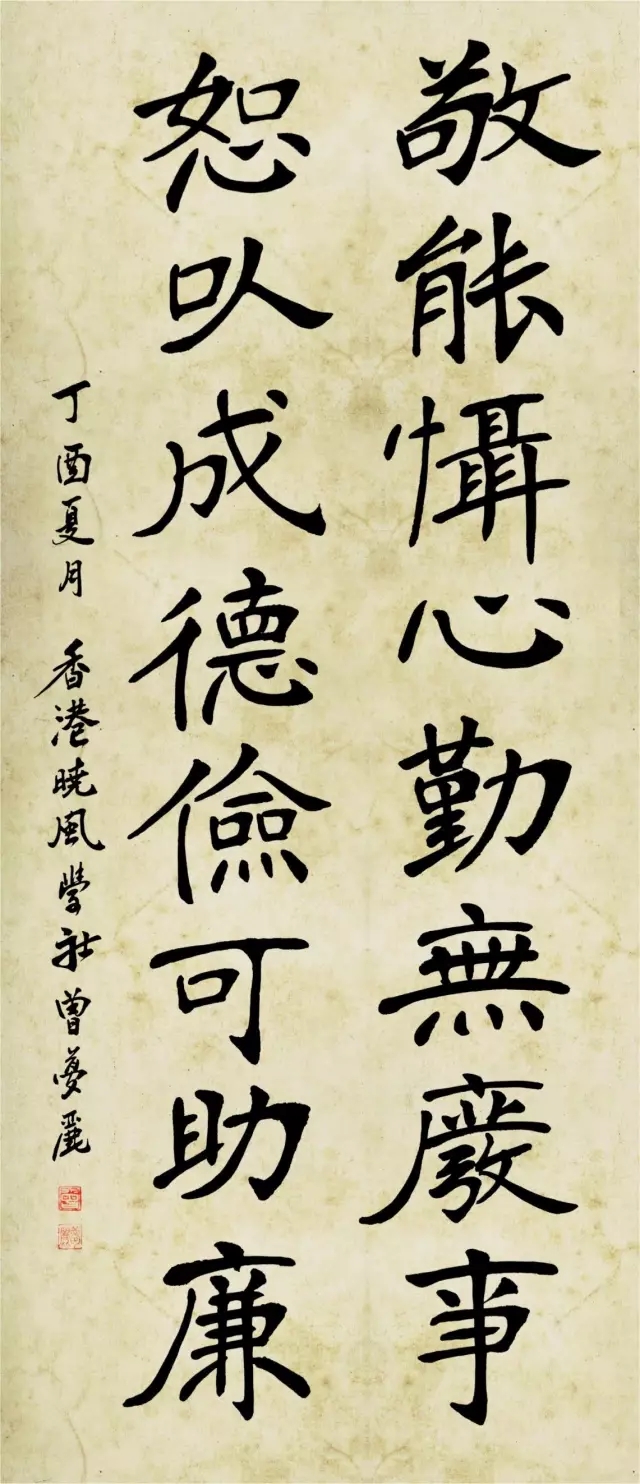 敬能懾心勤無廢事
恕以成德儉可助廉
丁酉夏月 香港曉風學社曾夢麗